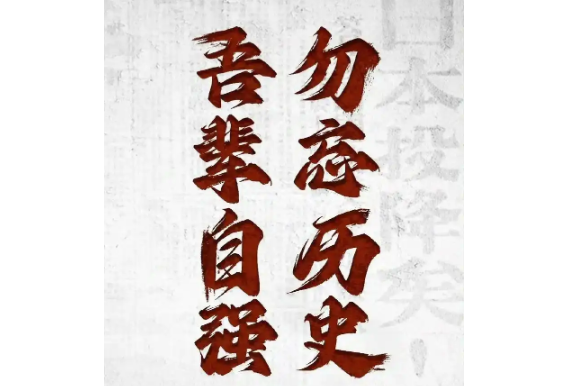 日本投降矣！
勿忘历史
吾辈自强